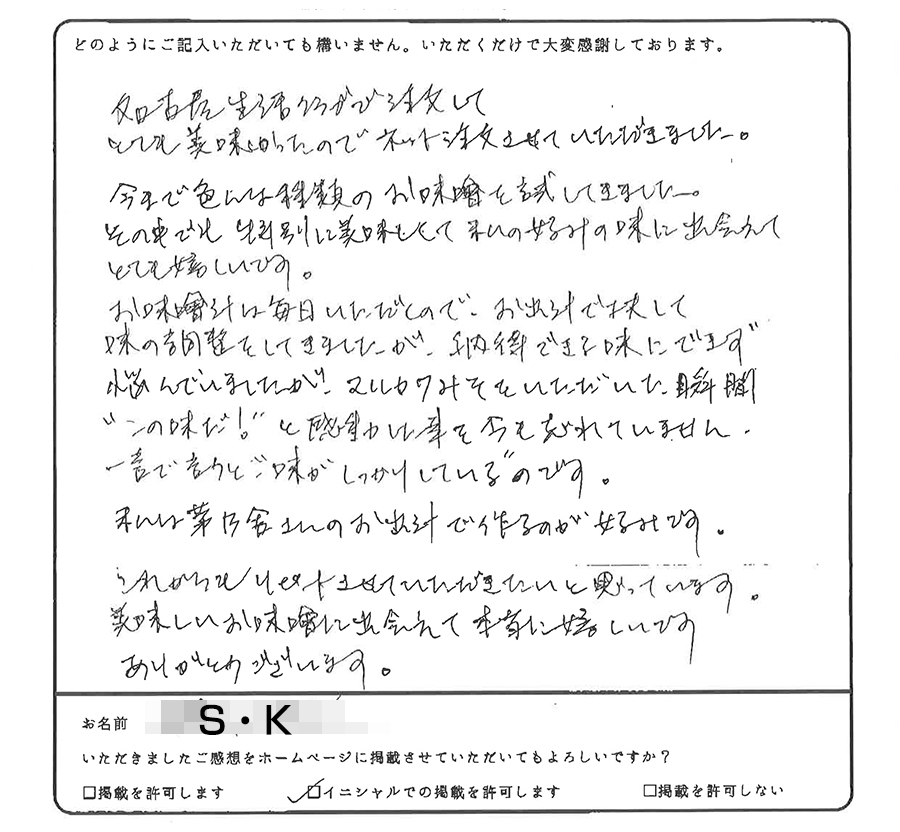 どのようにご記入いただいても構いません。いただくだけで大変感謝しております。
名古屋生活クラブで注文して
とても美味しかったのでネット注文させていただきました。
今まで色んな種類のお味噌を試してきました。
その中でも 特別に美味しくて 私の好みの味に出会えて
とても嬉しいです。
お味噌汁は毎日いただくので、お出汁で工夫して
味の調整をしてきましたが、納得できる味にできず
悩んでいましたが、マルカワみそをいただいた瞬間
"この味だ!"と感動した事を今も忘れていません。
一言で言うと"味がしっかりしている"のです。
私は茅乃舎さんのお出汁で作るのが好みです。
これからもリピートさせていただきたいと思っています。
美味しいお味噌に出会えて本当に嬉しいです
ありがとうございます。
お名前 S・K
いただきましたご感想をホームページに掲載させていただいてもよろしいですか？
□掲載を許可します ☑イニシャルでの掲載を許可します □掲載を許可しない